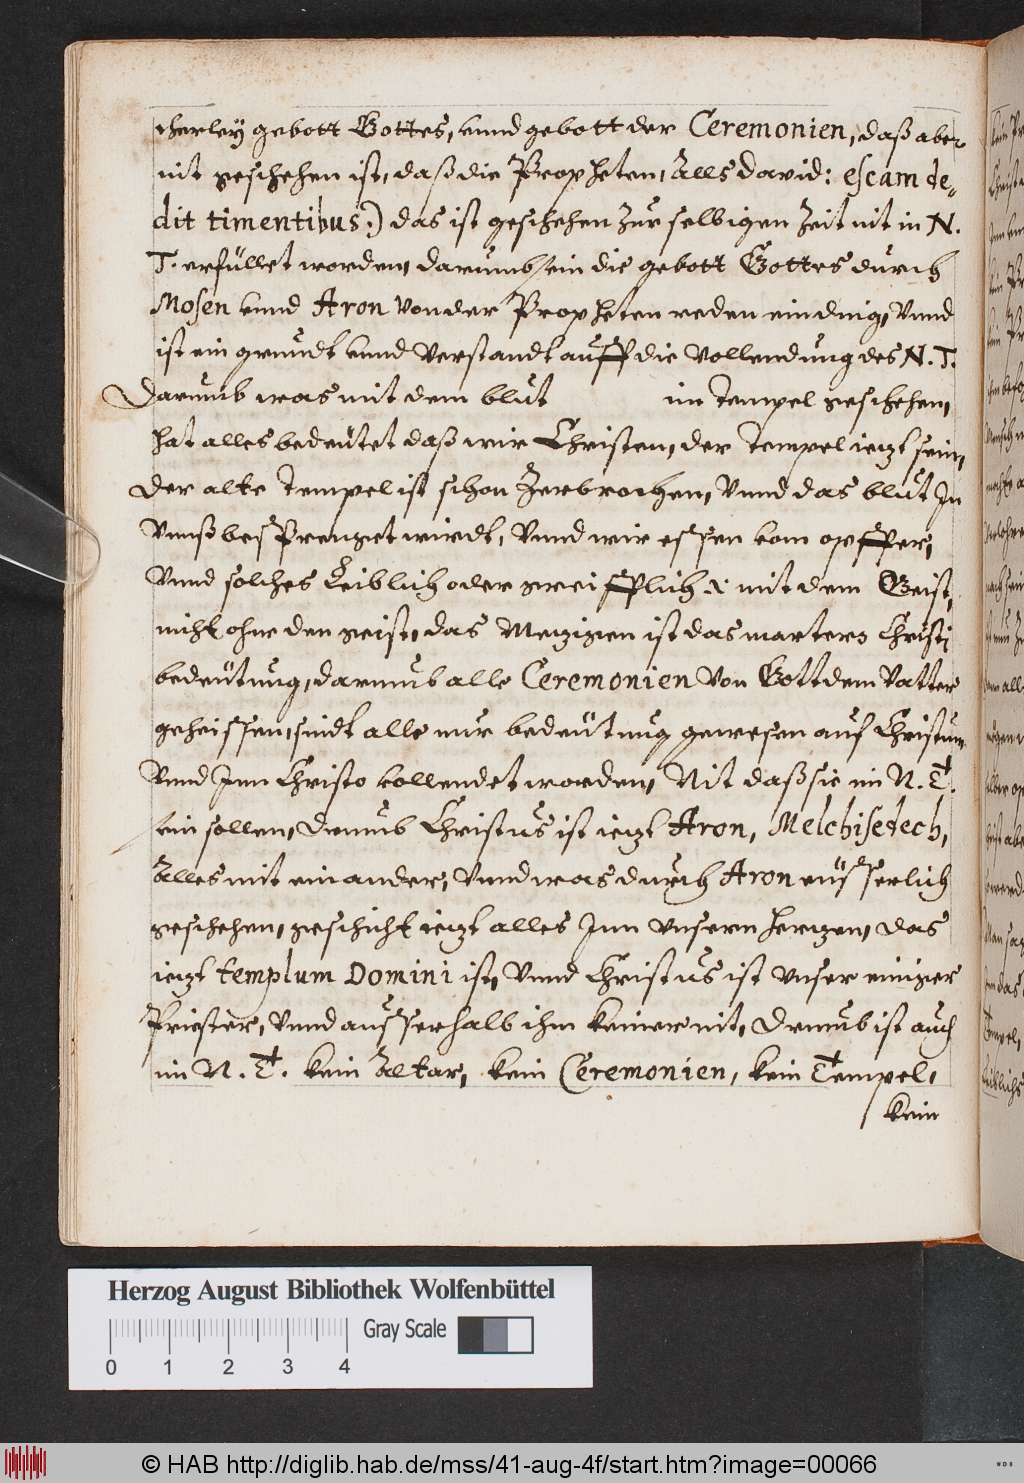 cherley gebott Gottes, vund gebott der Ceremonien, daß aber
nit geschehen ist, daß die Propheten, Alls david: escam de⸗
dit timentibus.) das ist geschehen zur selbigen Zeit nit in N.
T. erfüllet worden, darumb sein die gebott Gottes durch
Mosen vnnd Aron von der Propheten reden ein ding, Vnnd
ist ein grundt vnnd Verstandt auff die vollendung des N. T.
Darumb was mit dem blut im tempel geschehen,
hat alles bedeütet daß wir Christen, der tempel ietzt sein,
der alte tempel ist schon Zerbrochen, Vnnd das blut In
Vnnß besprenget wirdt, Vnnd wir essen vom opffer,
Vnnd solches Leiblich oder greifflich mit dem Geist,
nicht ohne den geist, das Metzigen ist das marters Christi
bedeütung, darumb alle Ceremonien von Gott dem Vatter
geheissen, sindt alle nur bedeütung gewesen auf Christum
Vnnd Inn Christo vollendet worden, Nit daß sie im N. T.
sein sollen, Drumb Christus ist ietzt Aron, Melchisedech,
Alles mit einander, Vnnd was durch Aron eüsserlich
geschehen, geschicht ietzt alles Inn vnsern hertzen, das
ietzt templum Domini ist, Vnnd Christus ist vnser einiger
Priester, Vnnd ausserhalb ihm keiner nit, Drumb ist auch
im N. T. kein Altar, kein Ceremonien, kein Tempel,
kein
Herzog August Bibliothek Wolfenbüttel
Gray Scale
0 1 2 3 4
© HAB http://diglib.hab.de/mss/41-aug-4f/start.htm?image=00066